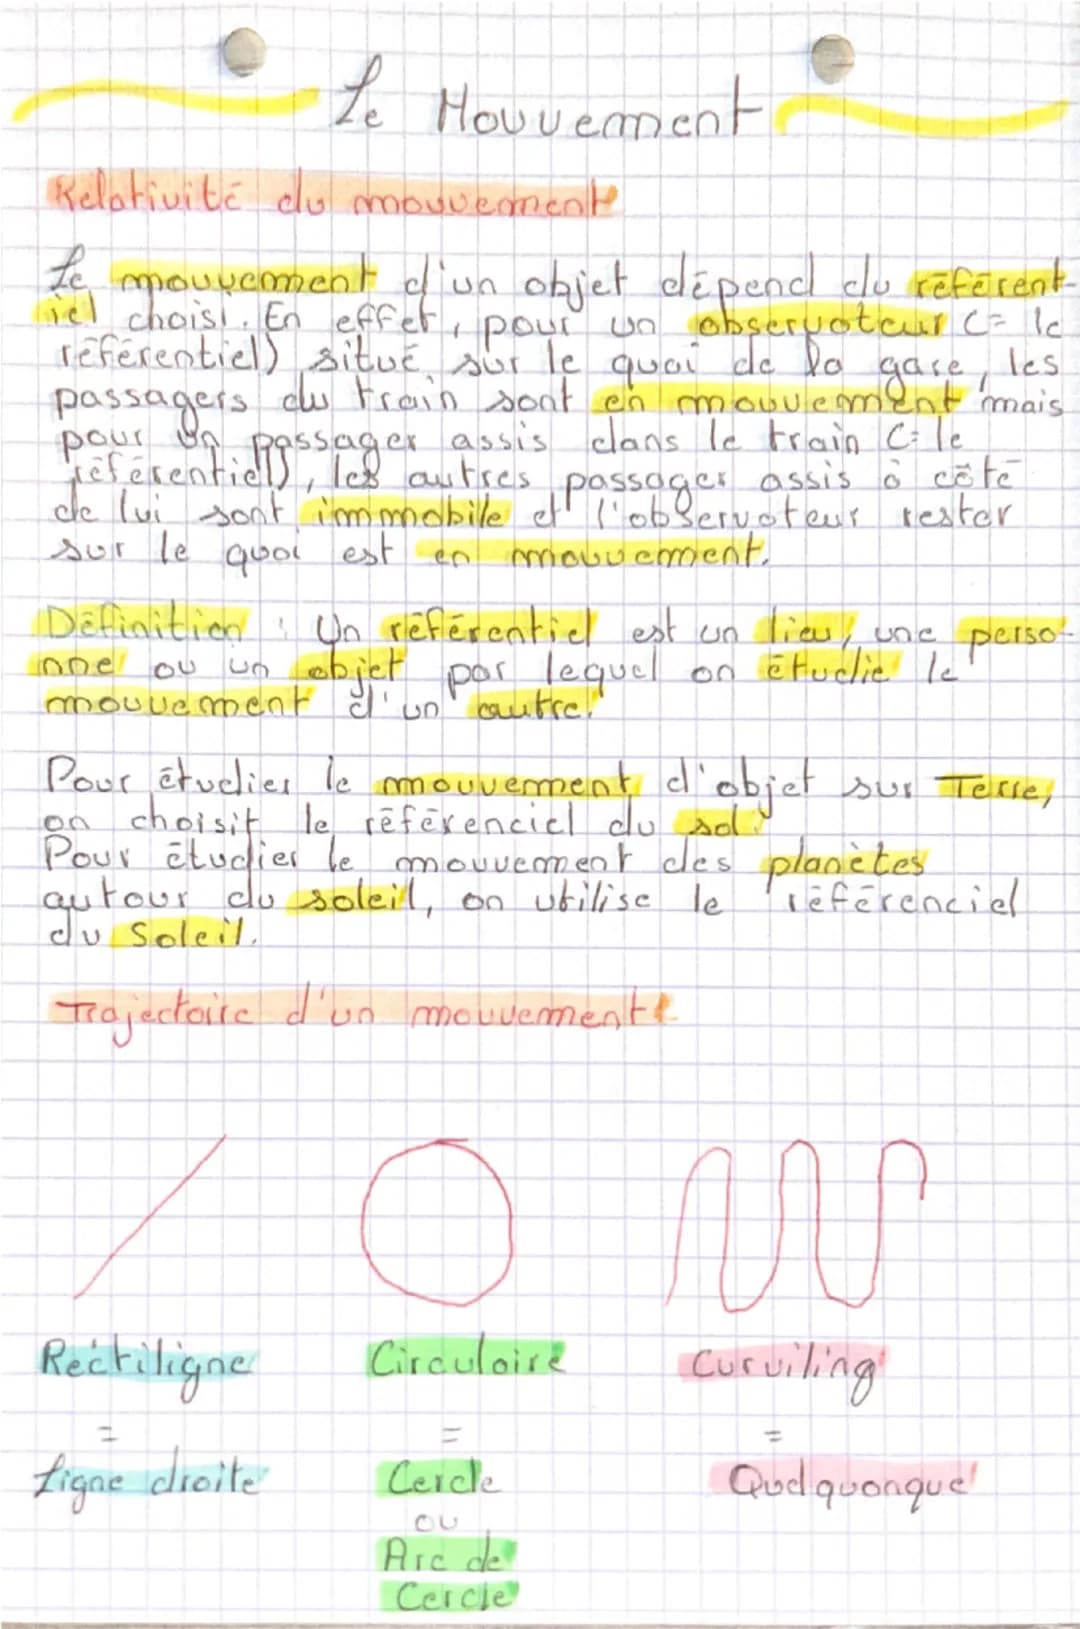 Le Mouvement
Relativité du mouvement
Le mouvement d'un objet dépend du référent-
iel choisi. En effet, pour un observateur (= le
référentiel) situé sur le quai de la gare, les
passagers du train sont en mouvement mais
pour un passager assis dans le train (= le
référentiel), les autres passager assis à côté
de lui sont immobile et l'observateur rester
sur le quai est en mouvement.
Définition : Un référentiel est un lieu, une perso-
nne ou un objet par lequel on étudie le
mouvement d'un autre.
Pour étudier le mouvement d'objet sur Terre,
on choisit le référenciel du sol.
Pour étudier le mouvement des planètes
autour du soleil, on utilise le référenciel
du Soleil.
Trajectoire d'un mouvement
Rectiligne Circulaire Curviling
= = =
Ligne droite Cercle Quelquonque
ou
Arc de
Cercle